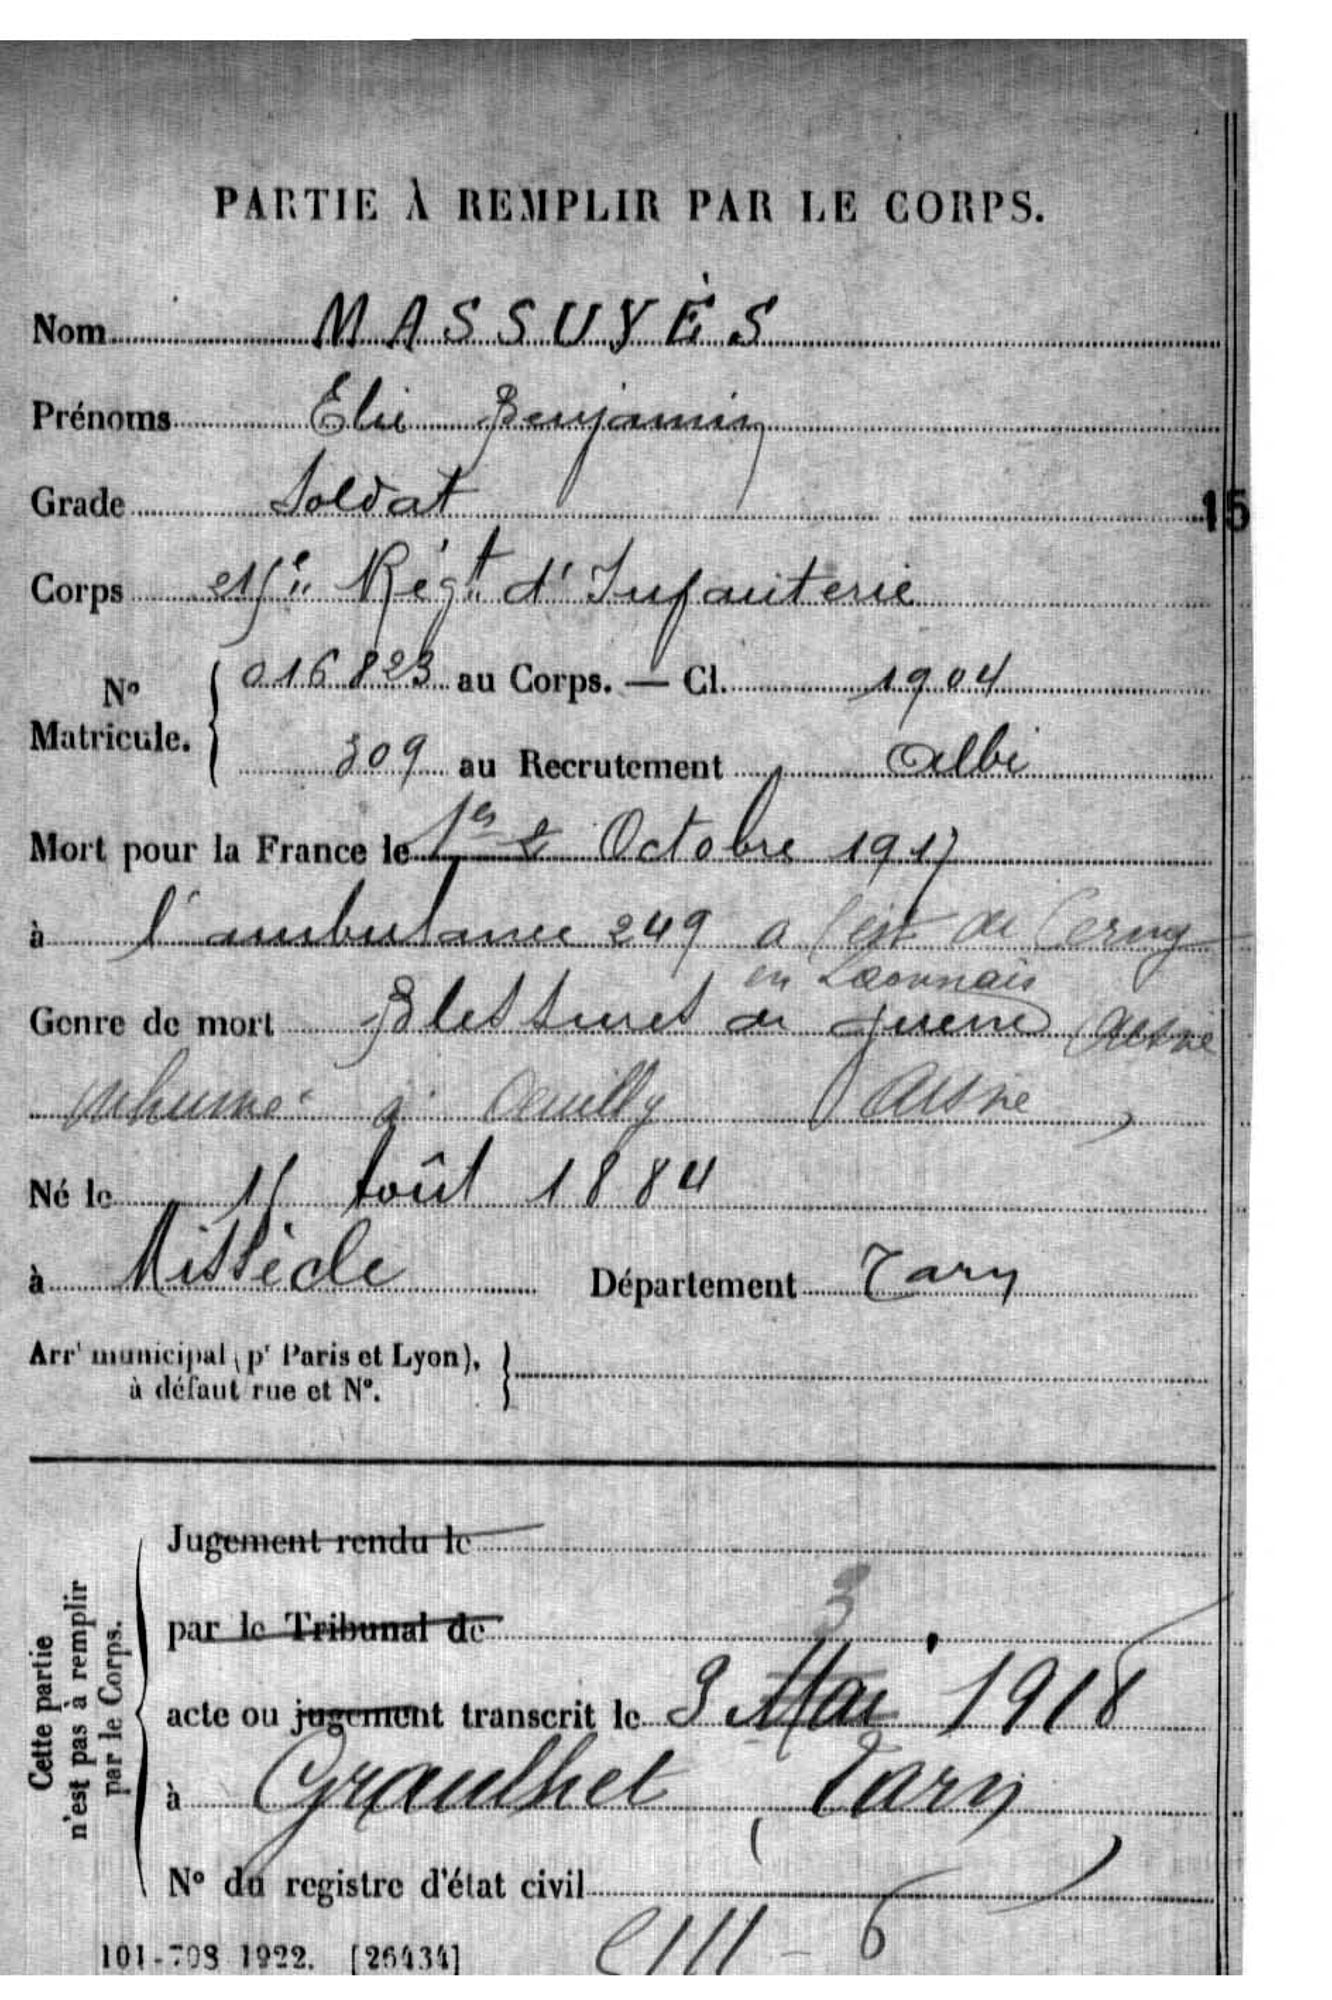 PARTIE À REMPLIR PAR LE CORPS.
Nom MASSUYÈS
Prénoms Elie Benjamin
Grade Soldat
15
Corps Régt d'Infanterie
No Matricule. 016823 au Corps. — Cl. 1904
309 au Recrutement Albi
Mort pour la France le 1er 2 Octobre 1917
à l'ambulance 249 a l'est de Cerny
en Laonnais
Genre de mort Blessures de guerre Aisne
inhumé à Oeuilly Aisne
Né le Août 1884
à Missècle Département Tarn
Arrt municipal (pr Paris et Lyon),
à défaut rue et No.
Cette partie
n'est pas à remplir
par le Corps.
Jugement rendu le
par le Tribunal de
3
acte ou jugement transcrit le 3 Mai 1918
à Graulhet (Tarn)
No du registre d'état civil
101-708 1922. [26434]